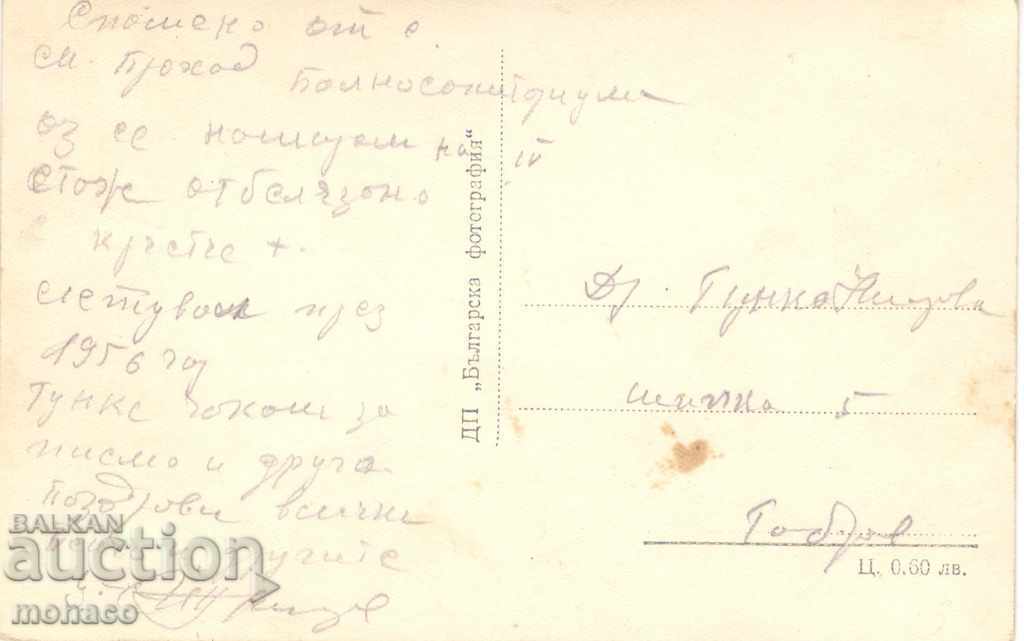 Спомено от с.
см. Проход
Болносонаториума
аз се помещам на IV
етож отбелязоно
кръстче +.
летувам през
1956 год
Тунке чокам за
писмо и друго
поздрови всички
другите
ДП „Българска фотография“
Др. Тунка
шипка 5
Габрово
Ц. 0.60 лв.
BALKAN
auction
mohaco